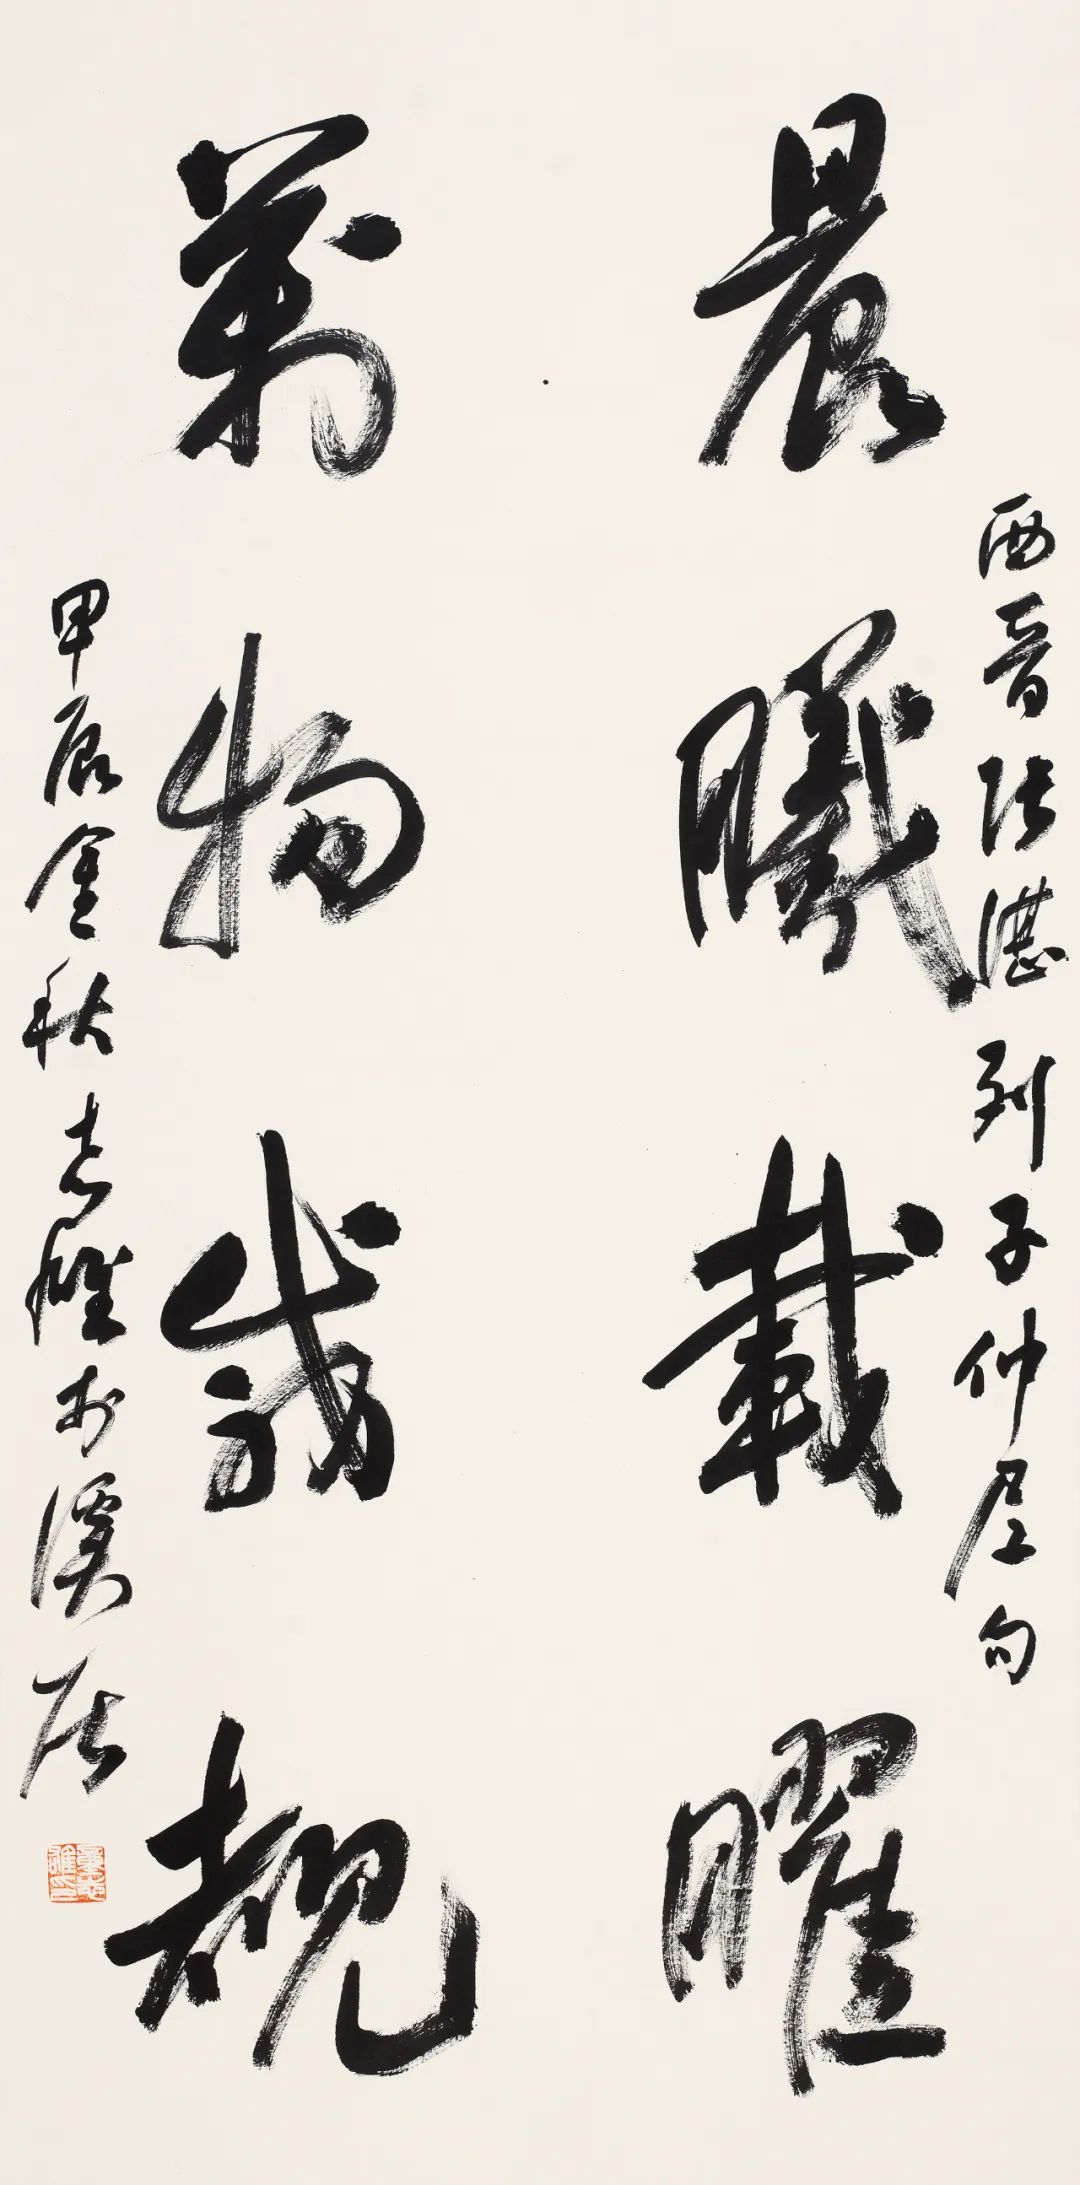 晨曦載曜
萬物咸覩
西晉張湛列子仲尼句
甲辰金秋志雄於溪居